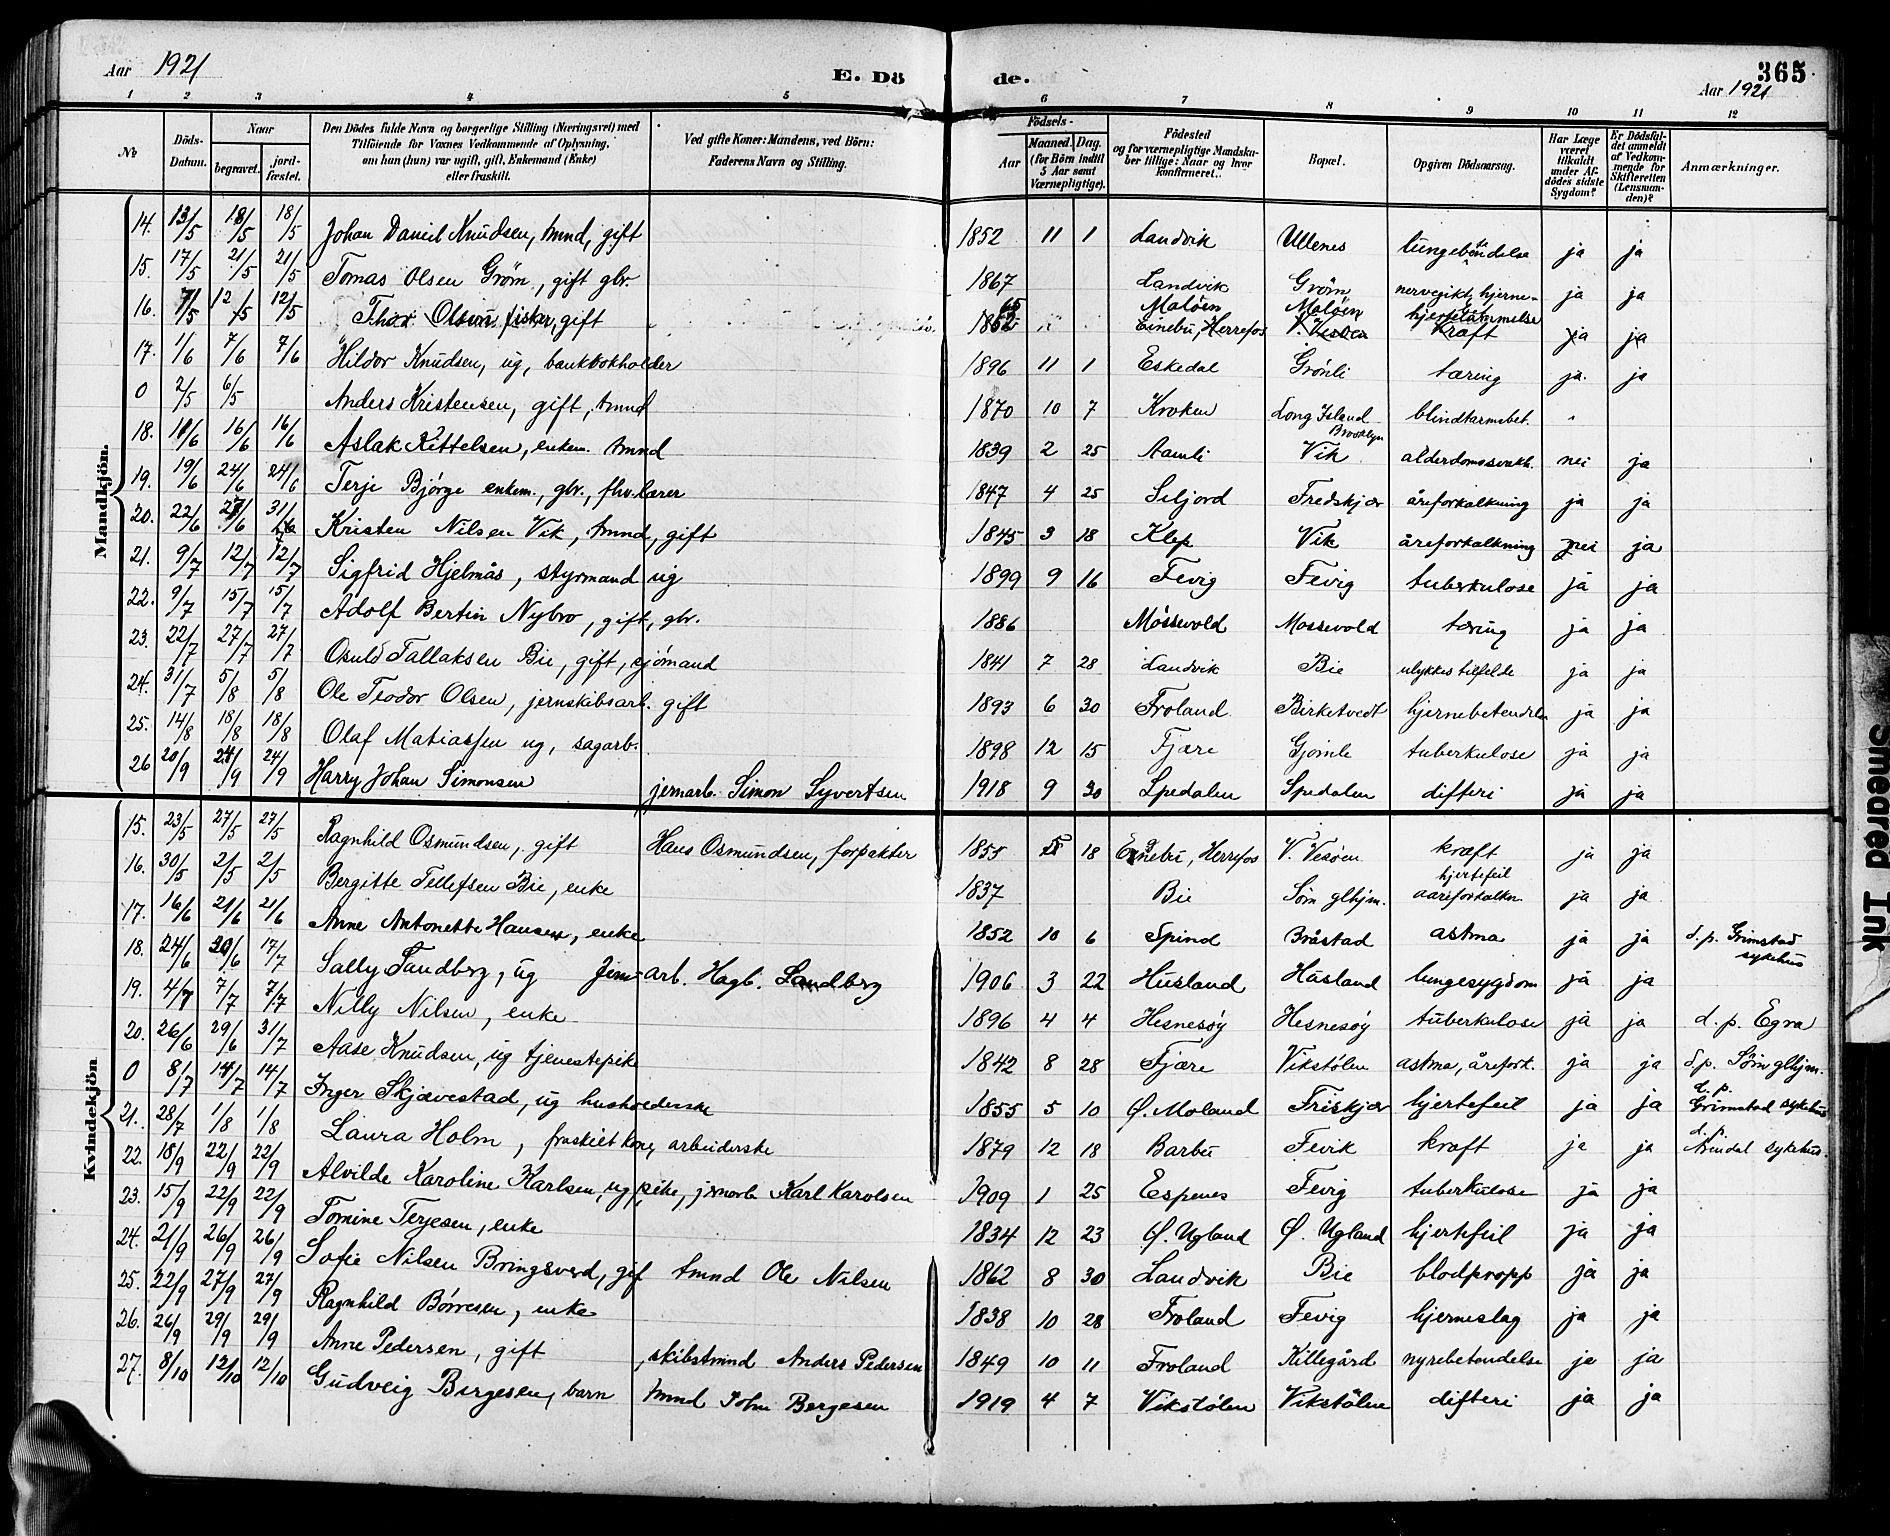 Aar 1921 E. Dö de. 365
Aar 1921
1 2 3 4 5 6 7 8 9 10 11 12
№ Döds-Datum. Naar begravet. jord-fæstet. Den Dödes fulde Navn og borgerlige Stilling (Næringsvei) med Tilföiende for Voxnes Vedkommende af Oplysning, om han (hun) var ugift, gift, Enkemand (Enke) eller fraskilt. Ved gifte Koner: Mandens, ved Börn: Faderens Navn og Stilling. Födsels- Aar Maaned. Dag. (for Börn indtil 5 Aar samt Værnepligtige). Födested og for værnepligtige Mandskaber tillige: Naar og hvor konfirmeret. Bopæl. Opgiven Dödsaarsag. Har Læge været tilkaldt under Afdödes sidste Sygdom? Er Dödsfaldet anmeldt af Vedkommende for Skifteretten (Lensmanden)? Anmærkninger.
Mandkjön.
14. 13/5 18/5 18/5 Johan Daniel Knudsen, tmnd, gift 1852 11 1 Landvik Ullenes lungebetendelse ja ja
15. 17/5 21/5 21/5 Tomas Olsen Grøm, gift gbr. 1867 Landvik Grøm nervegikt, hjerne- ja ja
16. 7/5 12/5 12/5 Thor Olsen fisker, gift 1865 Maløen Maløen hjertelammelse
1852 Einebu, Herrefos V. Vesøen kræft ja ja
17. 1/6 7/6 7/6 Hildor Knudsen, ug, bankbokholder 1896 11 1 Eskedal Grønli tæring ja. ja
0 2/5 6/5 Anders Kristensen, gift, tmnd 1870 10 7 Kroken Long Island Brooklyn blindtarmsbet. "
18. 11/6 16/6 16/6 Aslak Kittelsen, enkem. tmnd 1839 2 25 Aamli Vik alderdomssvakh. nei ja
19. 19/6 24/6 24/6 Terje Bjørge enkem., gbr., fhv. lærer 1847 4 25 Seljord Fredskjær åreforkalkning ja ja
20. 22/6 27/6 31/7 Kristen Nilsen Vik, tmnd, gift 1845 3 18 Klep Vik åreforkalkning nei ja
21. 9/7 12/7 12/7 Sigfrid Hjelmås, styrmand ug 1899 9 16 Fevig Fevig tuberkulose ja ja
22. 9/7 15/7 15/7 Adolf Bertin Nybro, gift, gbr. 1886 Mossevold Mossevold tæring ja ja
23. 22/7 27/7 27/7 Osuld Tallaksen Bie, gift, sjømand 1841 7 28 Landvik Bie ulykkestilfelde ja ja
24. 31/7 5/8 5/8 Ole Teodor Olsen, jernskibsarb. gift 1893 6 30 Froland Birketvedt hjernebetendelse ja ja
25. 14/8 18/8 18/8 Olaf Matiassen ug, sagarb. 1898 12 15 Fjære Gjømle tuberkulose ja ja
26 20/9 24/9 24/9 Harry Johan Simonsen jernarb. Simon Syvertsen 1918 9 30 Spedalen Spedalen difteri ja ja
Kvindekjön
15. 23/5 27/5 27/5 Ragnhild Osmundsen, gift Hans Osmundsen, forpakter 1855 18 Enebu, Herrefos V. Vesøen kræft ja ja
16. 30/5 2/5 2/5 Bergitte Tellefsen Bie, enke 1837 Bie Søm glhjm. hjertefeil aareforkalkn ja ja
17. 16/6 21/6 21/6 Anne Antonette Hansen, enke 1852 10 6 Spind Bråstad astma ja ja d. p. Grimstad sykehus
18. 24/6 30/6 17/7 Sally Sandberg, ug Jern-arb. Hagb. Sandberg 1906 3 22 Husland Håsland lungesygdom ja ja
19. 4/7 7/7 7/7 Nilly Nilsen, enke 1896 4 4 Hesnesøy Hesnesøy tuberkulose ja ja d. p. Egra
20. 26/6 29/6 31/7 Aase Knudsen, ug tjenestepike 1842 8 28 Fjære Vikstølen astma, årefork. ja ja d.p. Søm glhjm.
0 8/7 14/7 14/7 Inger Skjævestad, ug husholderske 1855 5 10 Ø. Moland Friskjær hjertefeil ja ja d. p. Grimstad sykehus
21. 28/7 1/8 1/8 Laura Holm, fraskilt kone, arbeiderske 1879 12 18 Barbu Fevik kræft ja ja d. p. Arendal sykehus.
22. 18/9 22/9 22/9 Alvilde Karoline Karlsen, ug pike, jernarb Karl Karolsen 1909 1 25 Espenes Fevig tuberkulose ja ja
23. 15/9 22/9 22/9 Tomine Terjesen, enke 1834 12 23 Ø. Ugland Ø. Ugland hjertefeil ja ja
24. 21/9 26/9 26/9 Sofie Nilsen Bringsverd, gif tmnd Ole Nilsen 1862 8 30 Landvik Bie blodpropp ja ja
25. 22/9 27/9 27/9 Ragnhild Børresen, enke 1838 10 28 Froland Fevig hjerneslag ja ja
26. 26/9 29/9 29/9 Anne Pedersen, gift skibstmnd Anders Pedersen 1849 10 11 Froland Killegård nyrebetendelse ja ja
27. 8/10 12/10 12/10 Gudveig Birgesen, barn tmnd John Bergesen 1919 4 7 Vikstølen Vikstølen difteri ja ja
Smeared Ink